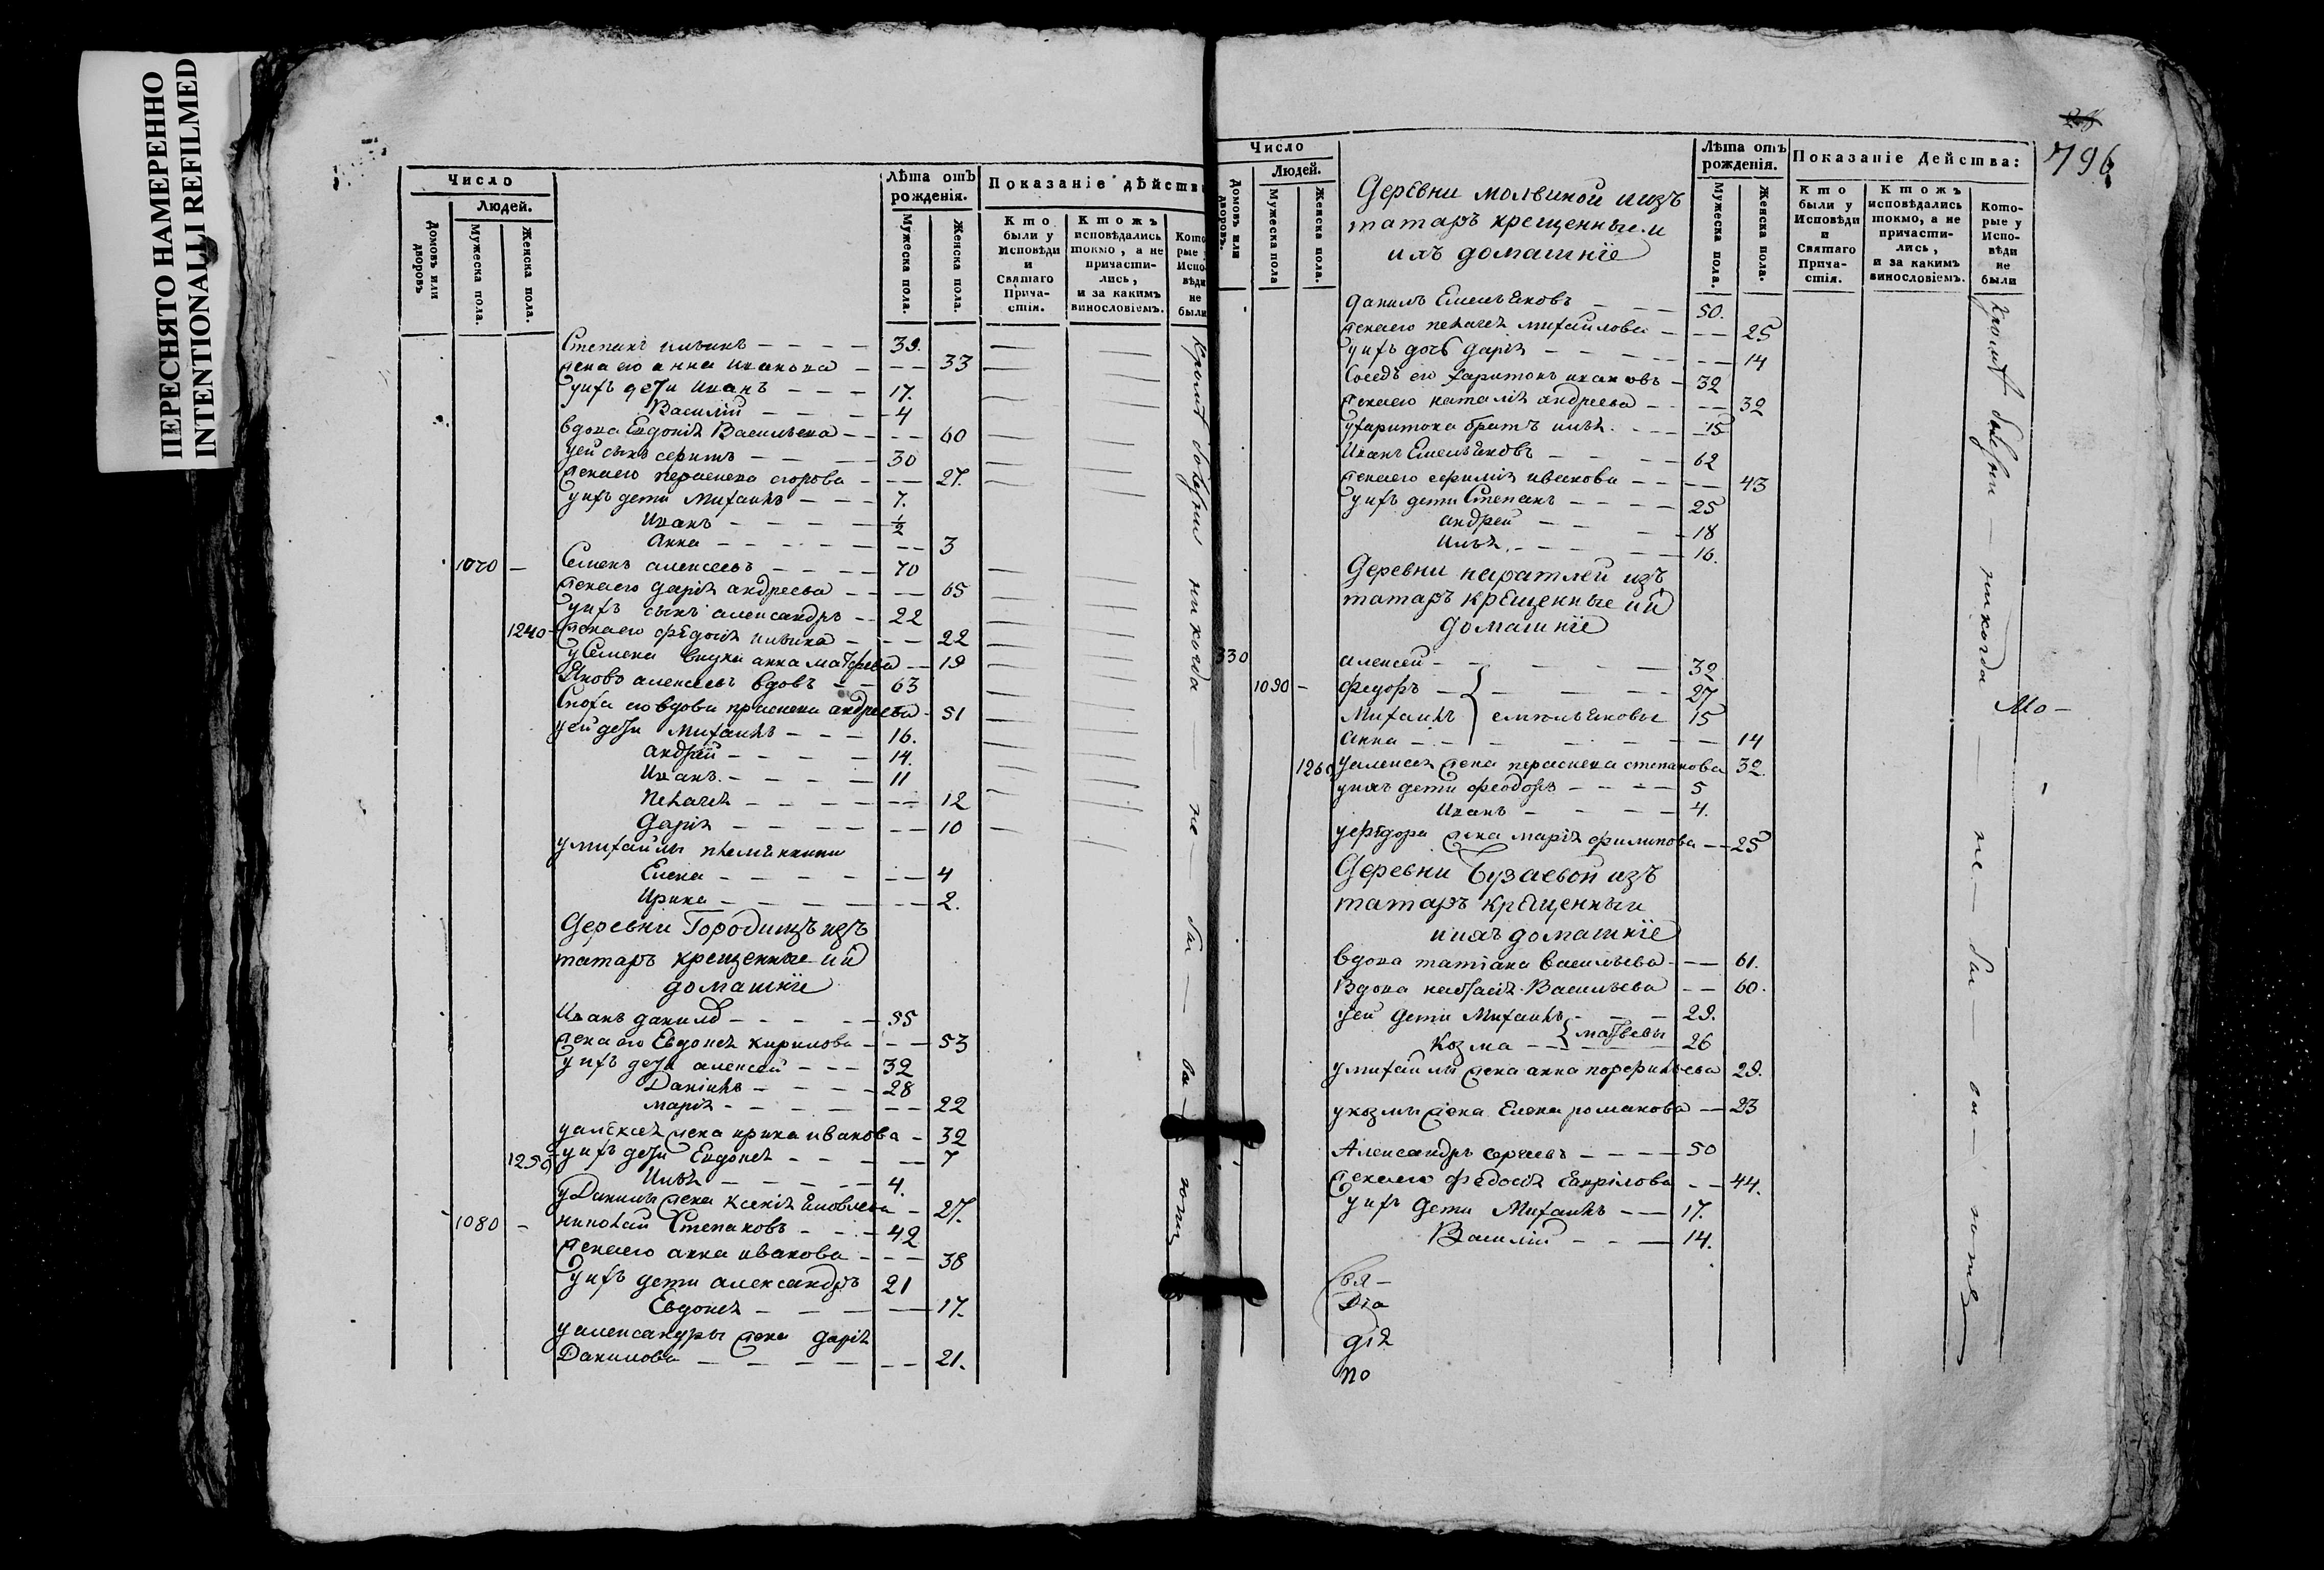 ПЕРЕСНЯТО НАМЕРЕННО
INTENTIONALLI REFILMED
Число
Людей.
Домовъ или дворовъ
Мужеска пола.
Женска пола.
Лѣта отъ рожденія.
Мужеска пола.
Женска пола.
Показаніе дѣйств
Кто были у Исповѣди и Святаго Прича-стія.
Ктожъ исповѣдались токмо, а не причасти-лись, и за какимъ винословіемъ.
Кото рые Испо вѣди не были
Степанъ ильинъ 39.
жена его анна иванова 33
у ихъ дети Иванъ 17.
Василій 4
вдова Евдокія Васильева 60
у ей сынъ 30
жена его параскева егорова 27.
у ихъ дети Михаилъ 7.
Иванъ ½
Анна 3
1070 Семенъ алексеевъ 70
жена его дарія андреева 65
у ихъ сынъ александръ 22
1240 жена его федосія ильина 22
у Семена внука анна матфеева 19
Яковъ алексеевъ вдовъ 63
Сноха его вдова праскева андреева 51
у ей дети Михаилъ 16.
андрей 14.
Иванъ 11
Пелагея 12
Дарія 10
у михаилы племянники
Елена 4
Ирина 2.
Деревни Городищъ изъ
татаръ крещенные и ий
домашніе
Иванъ данилъ 55
жена его Евдокея кирилова 53
у ихъ дети алексей 32
Данилъ 28
марія 22
у алексея жена ирина иванова 32
1250 у ихъ дети Евдокея 7
Илья 4.
у Данилы жена ксенія яковлева 27.
1080 николай Степановъ 42
жена его анна иванова 38
у ихъ дети александръ 21
Евдокея 17.
у александры жена дарія
Данилова 21.
никогда не
796
Число
Людей.
Домовъ или дворовъ.
Мужеска пола
Женска пола.
Деревни молвиной и изъ
татаръ крещенные и
ихъ домашніе
Лѣта отъ рожденія.
Мужеска пола.
Женска пола.
Показаніе Действа:
Кто были у Исповѣди и Святаго Прича-стія.
Ктожъ исповѣдались токмо, а не причасти-лись, и за какимъ винословіемъ.
Кото-рые у Испо-вѣди не были
данилъ Емельяновъ 50.
жена его пелагея михайлова 25
у ихъ дочь дарія 14
Соседъ его харитонъ ивановъ 32
жена его наталія андреева 32
у харитона братъ илья 15
Иванъ Емельяновъ 62
жена его ефимія иванова 43
у ихъ дети Степанъ 25
андрей 18
Илья 16.
Деревни наратлей изъ
татаръ крещенные и ий
домашніе
330 алексей 32
1090 федоръ 27
Михаилъ емельяновы 15
анна 14
1260 у алексея жена параскева степанова 32.
у ихъ дети феодоръ 5
Иванъ 4.
у федора жена марія филипова 25
Деревни Бузаевой изъ
татаръ крещенныи
и ихъ домашніе
вдова татіана васильева 61.
Вдова настасія Васильева 60.
у ей дети Михаилъ 29.
Козма матвевы 26
у михайлы жена анна порфирьева 29.
у козмы жена Елена романова 23
Александръ сергеевъ 50
жена его федосія Гаврілова 44.
у ихъ дети Михаилъ 17.
Василій 14.
Свя-
Dіа
дія
по
никогда не
Мо-